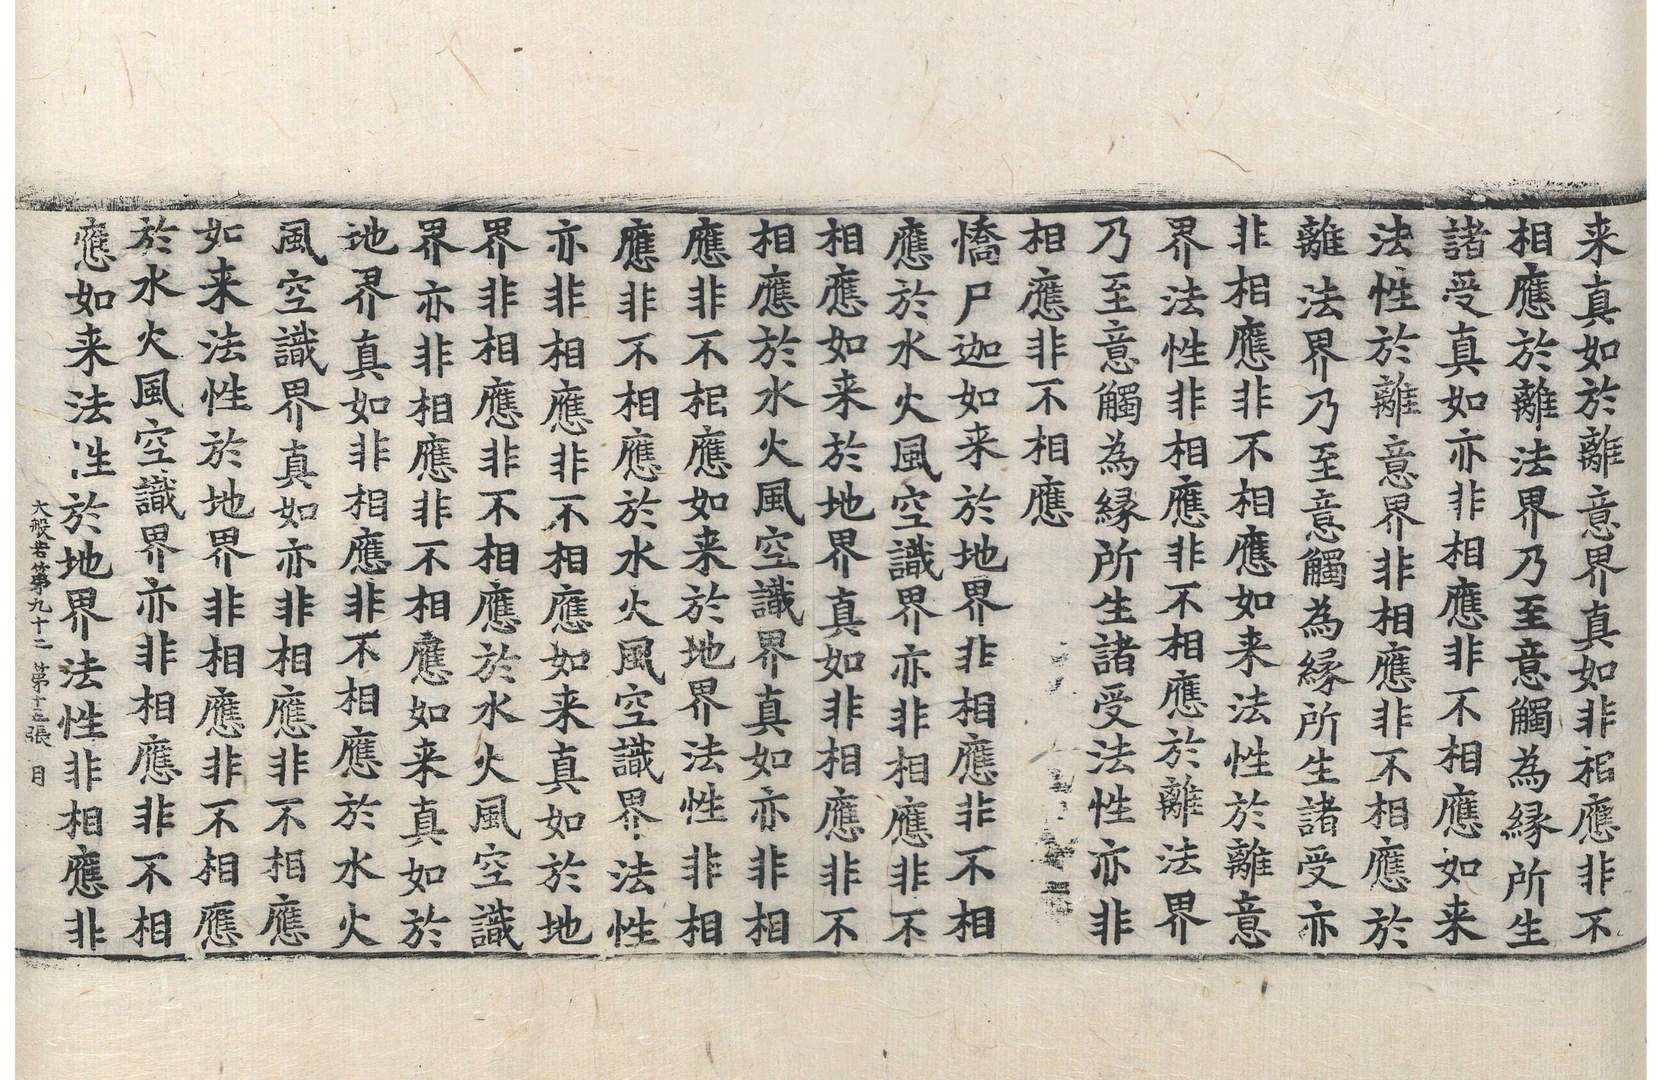 来真如於離意界真如非相應非不
相應於離法界乃至意觸為縁所生
諸受真如亦非相應非不相應如来
法性於離意界非相應非不相應於
離法界乃至意觸為縁所生諸受亦
非相應非不相應如来法性於離意
界法性非相應非不相應於離法界
乃至意觸為縁所生諸受法性亦非
相應非不相應
憍尸迦如来於地界非相應非不相
應於水火風空識界亦非相應非不
相應如来於地界真如非相應非不
相應於水火風空識界真如亦非相
應非不相應如来於地界法性非相
應非不相應於水火風空識界法性
亦非相應非不相應如来真如於地
界非相應非不相應於水火風空識
界亦非相應非不相應如来真如於
地界真如非相應非不相應於水火
風空識界真如亦非相應非不相應
如来法性於地界非相應非不相應
於水火風空識界亦非相應非不相
應如来法性於地界法性非相應非
大般若第九十二 第十五張 目